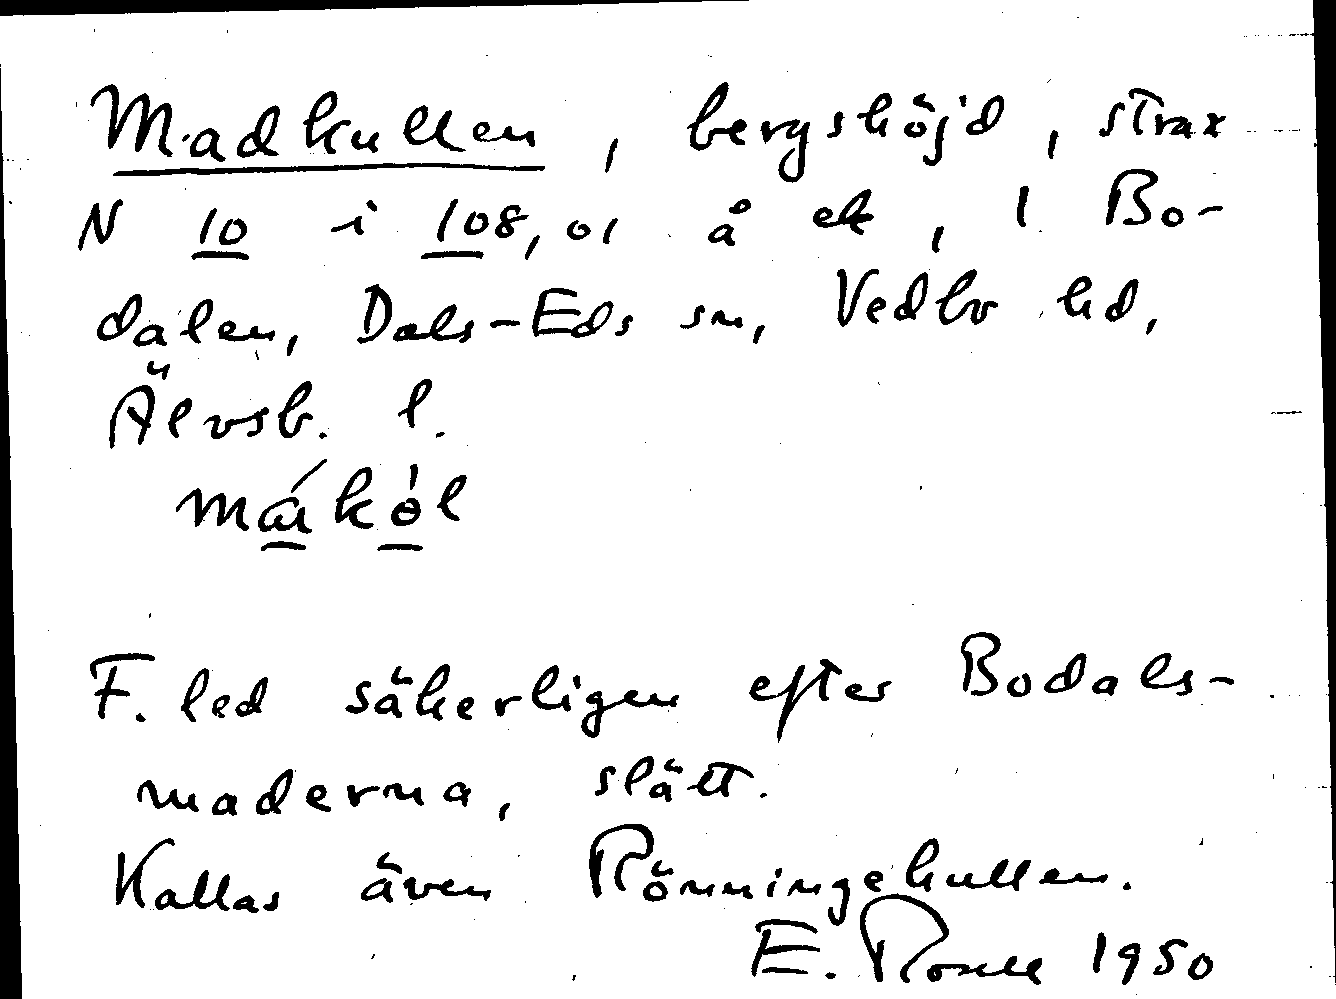 Madkullen, bergshöjd, strax
N 10 i 108,01 å ek, 1 Bo-
dalen, Dals-Eds sn, Vedbo hd,
Älvsb. l.
F. led säkerligen efter Bodals-
maderna, slätt.
Kallas även Rönningekullen.
E. 1950